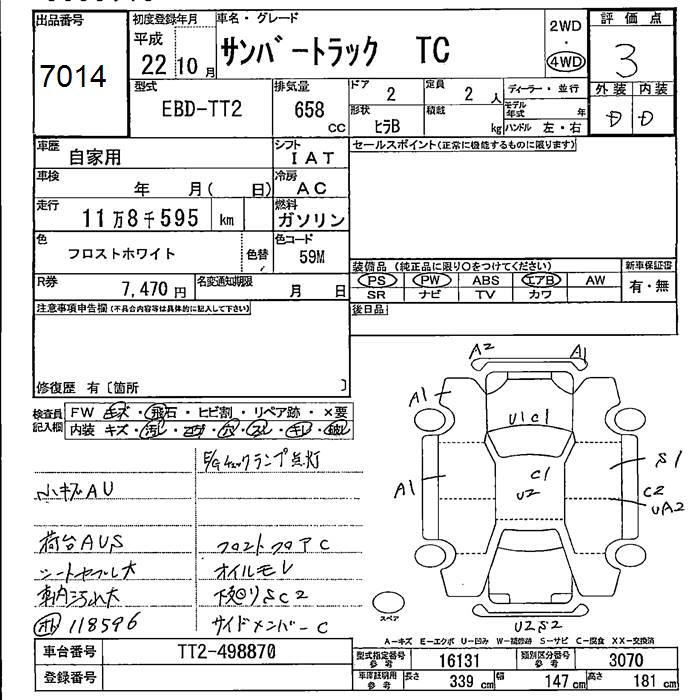 出品番号
7014
初度登録年月
平成
22 10 月
車名・グレード
サンバートラック TC
2WD
・
4WD
評価点
3
外装 内装
D D
型式
EBD-TT2
排気量
658
CC
ドア
2
定員
2 人
形状
ヒラB
積載
kg
ディーラー・並行
モデル年式 年
ハンドル 左・右
車歴
自家用
シフト
IAT
車検
年 月( 日)
冷房
AC
走行
11万8千595 km
燃料
ガソリン
色
フロストホワイト
色替
色コード
59M
R券
7,470 円
名変通知期限
月 日
セールスポイント(正常に機能するものに限ります)
装備品 (純正品に限り○をつけてください)
PS PW ABS エアB AW
SR ナビ TV カワ
新車保証書
有・無
後日品
注意事項申告欄(不具合内容等は具体的に記入して下さい)
修復歴 有〔箇所 〕
検査員記入欄
FW キズ・飛石・ヒビ割・リペア跡・×要
内装 キズ・汚レ・コゲ・穴・スレ・キレ・破レ
E/Gチェックランプ点灯
小キズAU
荷台AUS
フロントフロアC
シートヤブレ大
オイルモレ
車内汚れ大
下廻りSC2
118596
サイドメンバーC
A2 A1
A1
U1C1
A1
C1
U2
S1
C2
UA2
U2S2
スペア
A-キズ E-エクボ U-凹み W-補修跡 S-サビ C-腐食 XX-交換済
車台番号
TT2-498870
登録番号
型式指定番号
参考
16131
類別区分番号
参考
3070
車庫証明用
参考
長さ
339 cm
幅
147 cm
高さ
181 cm